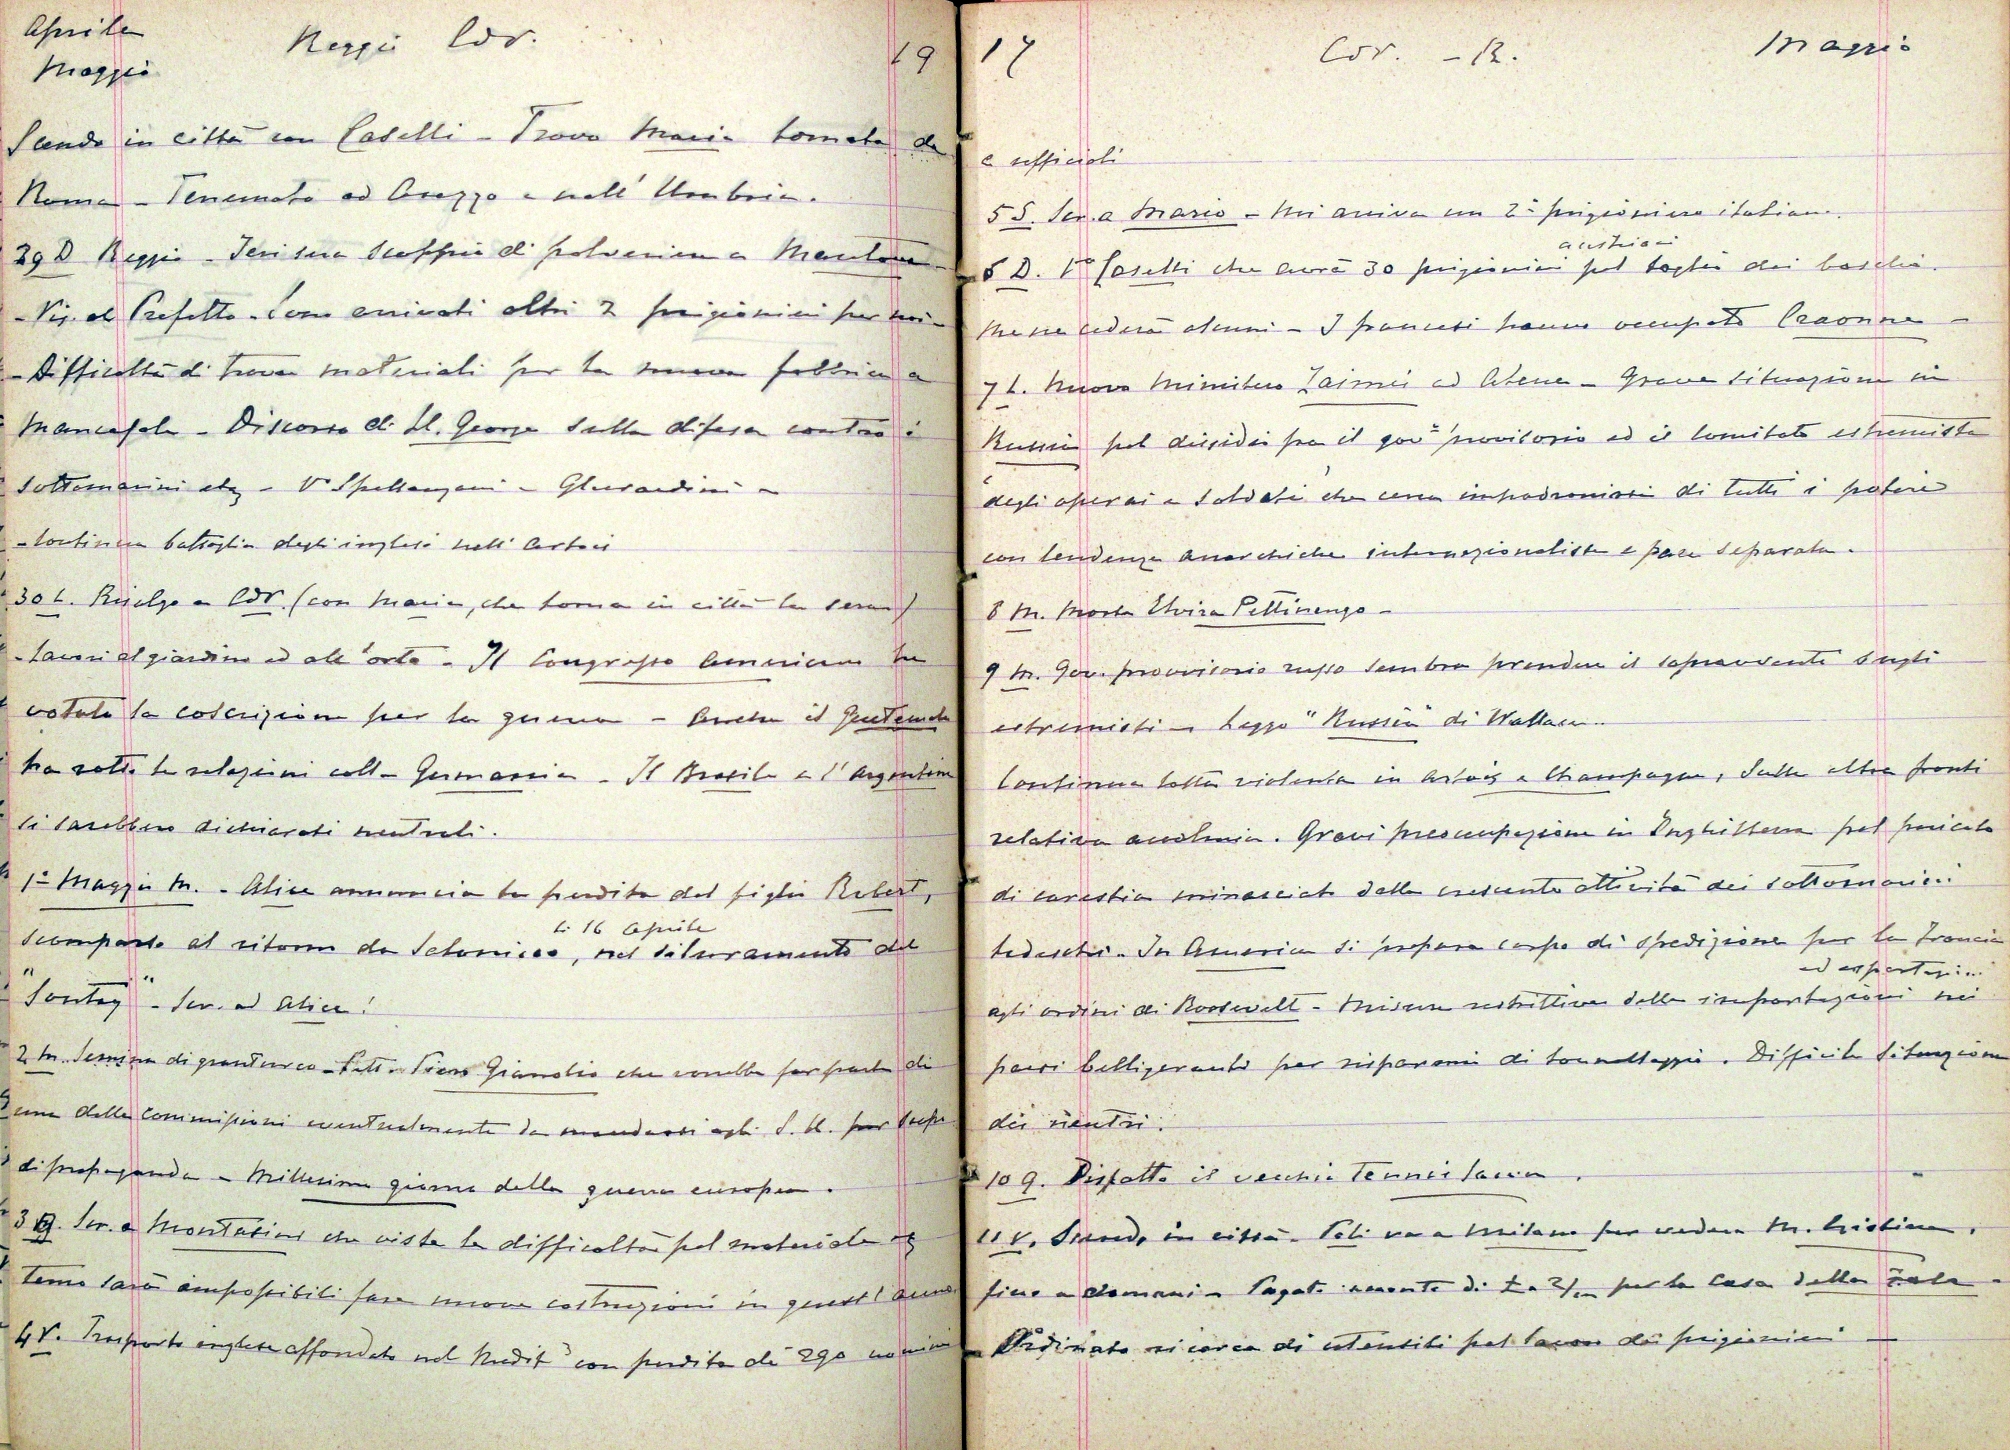 Aprile
Maggio
Reggio Cor.
19
Scendo in città con Caselli - Trovo Maria tornata da
Roma - Terremoto ad Arezzo e nell' Umbria.
29 D Reggio - Ieri sera scoppio di polveriera a Mantova -
- Vis. al Prefetto - Sono arrivati altri 2 prigionieri per noi -
- Difficoltà di trovar materiali per la nuova fabbrica a
Mancasale - Discorso di Ll. George sulla difesa contro i
sottomarini etc - Vo Spallanzani - Gherardini -
- Continua battaglia degli inglesi nell' Artois
30 L. Risalgo a Cor. (con Maria, che torna in città la sera)
- Lavori al giardino ed all' orto - Il Congresso Americano ha
votato la coscrizione per la guerra - Anche il Guatemala
ha rotto le relazioni colla Germania - Il Brasile e l'Argentina
si sarebbero dichiarati neutrali.
1° Maggio M. - Alice annuncia la perdita del figlio Robert,
li 16 Aprile
scomparso al ritorno da Salonicco, nel siluramento del
"Sontay" - Scr. ad Alice!
2 M. Semina di granturco - Lett. Piero Giandio che vorrebbe far parte di
una delle commissioni eventualmente da mandarsi agli S. U. per scopo
di propaganda - Millesimo giorno della guerra europea.
3 G. Scr. a Montasini che viste le difficoltà pel materiale etc
temo sarà impossibili fare nuove costruzioni in quest' anno
4 V. Trasporto inglese affondato nel Medit° con perdita di 290 uomini
17
Cor. - R.
Maggio
e ufficiali
5 S. Scr. a Mario - Mi arriva un 2° prigioniero italiano.
austriaci
6 D. Vo Caselli che avrà 30 prigionieri pel taglio dei boschi.
Me ne cederà alcuni - I francesi hanno occupato Craonne -
7 L. Nuovo Ministero Zaimis ad Atene - Grave situazione in
Russia pel dissidio fra il gov° provisorio ed il Comitato estremista
degli operai e soldati che cerca impadronirsi di tutti i poteri
con tendenze anarchiche internazionaliste e pace separata.
8 M. Morta Elvira Pettinengo -
9 M. Gov. provvisorio russo sembra prendere il sopravvento sugli
estremisti - Leggo "Russia" di Wallace.
Continua lotta violenta in Artois e Champagne, Sulle altre fronti
relativa acalmia. Gravi preoccupazioni in Inghilterra pel pericolo
di carestia minacciato dalla crescente attività dei sottomarini
tedeschi. In America si prepara corpo di spedizione per la Francia
ed esportazioni
agli ordini di Roosevelt - Misure restrittive delle importazioni nei
paesi belligeranti per risparmio di tonnellaggio. Difficile situazione
dei neutri.
10 G. Disfatto il vecchio Tennis
11 V. Scendo in città - va a Milano per vedere M. Cristina,
fino a domani - Pagato di per la Casa della
Ordinato ricerca di utensili pel lavoro dei prigionieri -